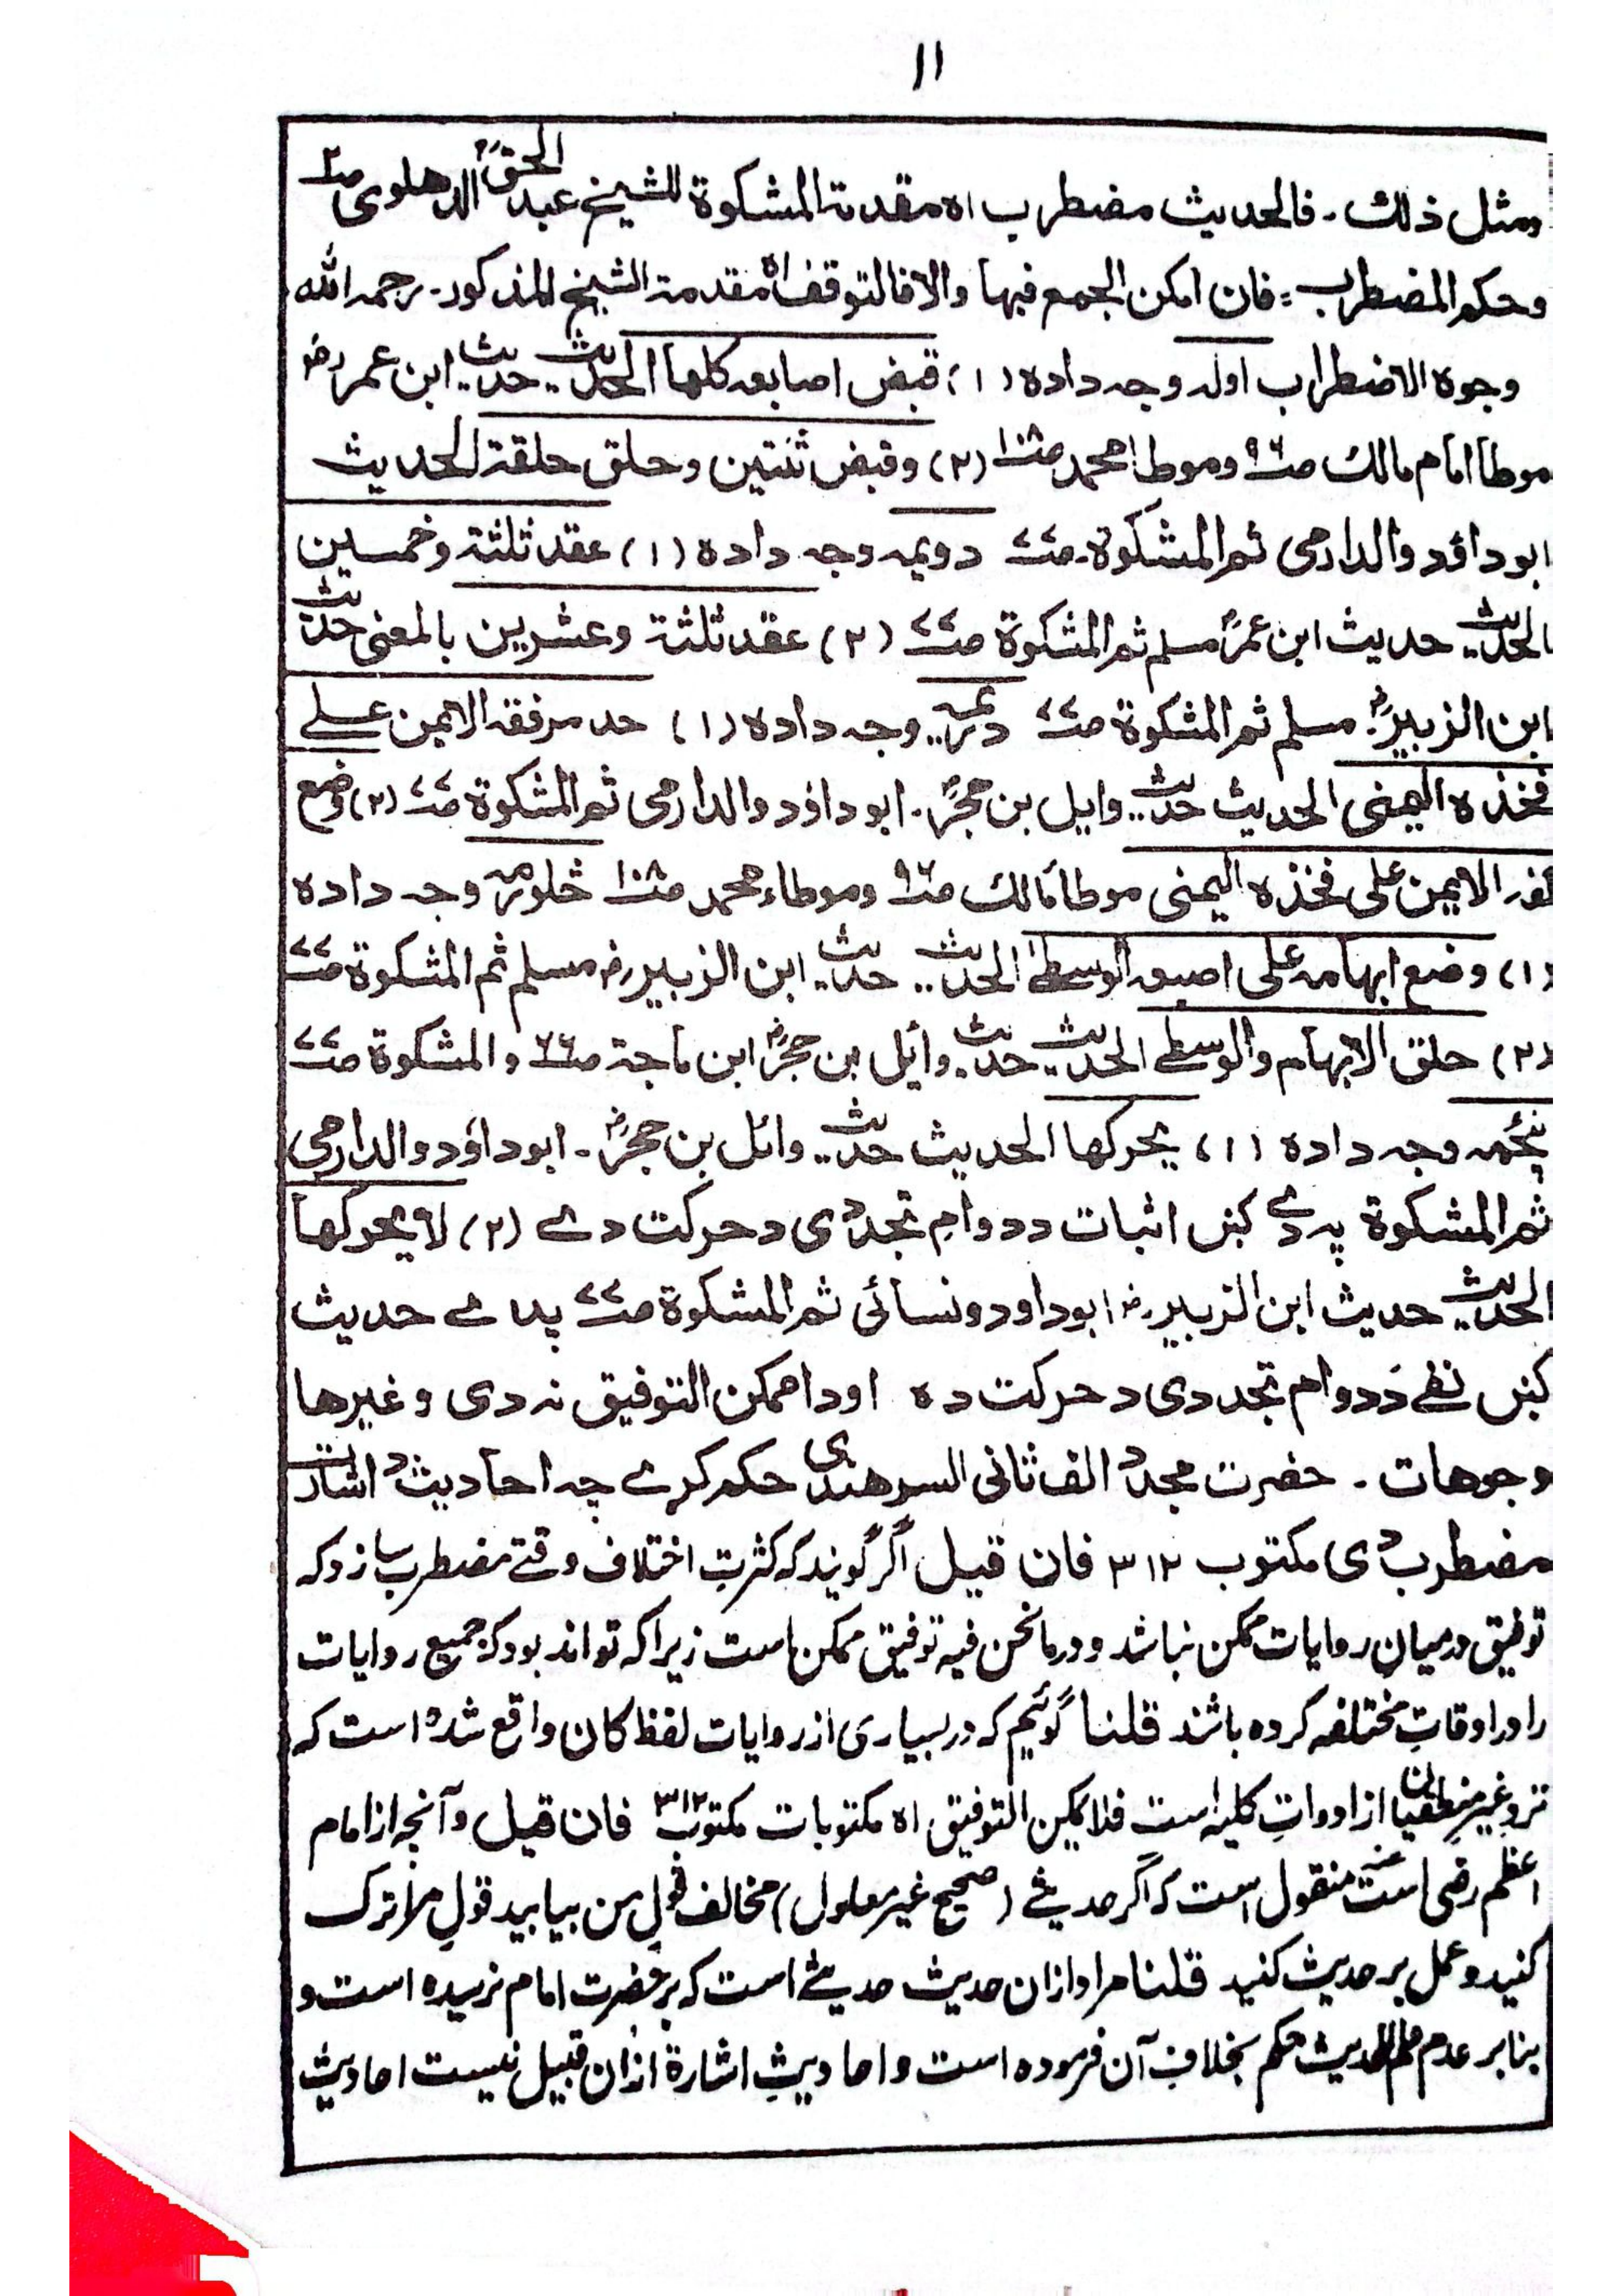 ۱۱
ومثل ذلك۔ فالحدیث مضطرب اه مقدمة المشکوة للشیخ عبد الحقؒ الدهلوی صـ۴
وحکم المضطرب: فان امکن الجمع فبها والا فالتوقف اه مقدمة الشیخ المذکور۔ رحمه الله
وجوه الاضطراب اوله وجه داده (۱) قبض اصابعه کلها الحدیث۔ حدیث ابن عمرؓ
موطا امام مالك صـ۹۶ وموطا محمد صـ۱۰۸ (۲) وقبض ثنتین وحلق حلقة الحدیث
ابوداؤد والدارمی ثم المشکوة۔ صـ۷۷ دویمه وجه داده (۱) عقد ثلثة وخمسین
الحدیث حدیث ابن عمرؓ مسلم ثم المشکوة صـ۷۷ (۲) عقد ثلثة وعشرین بالمعنی حدیث
ابن الزبیرؓ۔ مسلم ثم المشکوة صـ۷۷ دریمه وجه داده (۱) حد مرفقه الایمن علی
فخذه الیمنی الحدیث حدیث وایل بن حجرؓ۔ ابوداؤد والدارمی ثم المشکوة صـ۷۷ (۲) وضع
کفه الایمن علی فخذه الیمنی موطأ مالك صـ۹۶ وموطاء محمد صـ۱۰۸ څلورمه وجه داده
(۱) وضع ابهامه علی اصبعه الوسطی الحدیث۔ حدیث ابن الزبیرؓ مسلم ثم المشکوة صـ۷۷
(۲) حلق الابهام والوسطی الحدیث حدیث وائل بن حجرؓ ابن ماجة صـ۶۶ والمشکوة صـ۷۷
پنځمه وجه داده (۱) یحرکها الحدیث حدیث وائل بن حجرؓ۔ ابوداؤد والدارمی
ثم المشکوة په دے کښ اثبات د دوامِ تجدّدی د حرکت دے (۲) لا یحرکها
الحدیث حدیث ابن الزبیرؓ ابوداود ونسائی ثم المشکوة صـ۷۷ پدے حدیث
کښ نفے دَ دوام تجددی د حرکت ده اودا ممکن التوفیق نه دی وغیرها
وجوهات۔ حضرت مجددؒ الف ثانی السرهندی حکم کړے چه احادیث د اشارت
مضطرب دی مکتوب ۳۱۲ فان قیل اگر گویند که کثرتِ اختلاف وقتے مضطرب سازد که
توفیق درمیان روایات ممکن نباشد ودرمانحن فیه توفیق ممکن است زیراکه تواند بود که جمیع روایات
را در اوقاتِ مختلفه کرده باشند قلنا گوئیم که در بسیاری از روایات لفظ کان واقع شده است که
نزد غیر منطقیان از ادواتِ کلیه است فلا یمکن التوفیق اه مکتوبات مکتوب ۳۱۲ فان قیل وآنچه از امام
اعظم رضی الله عنه منقول است که اگر حدیثے (صحیح غیر معلول) مخالف قولِ من بیابید قولِ مرا ترک
کنید وعمل بر حدیث کنید قلنا مراد ازان حدیث حدیثے است که بحضرت امام نرسیده است و
بنابر عدم علم الحدیث حکم بخلافِ آن فرموده است واحادیثِ اشارة ازان قبیل نیست احادیثِ